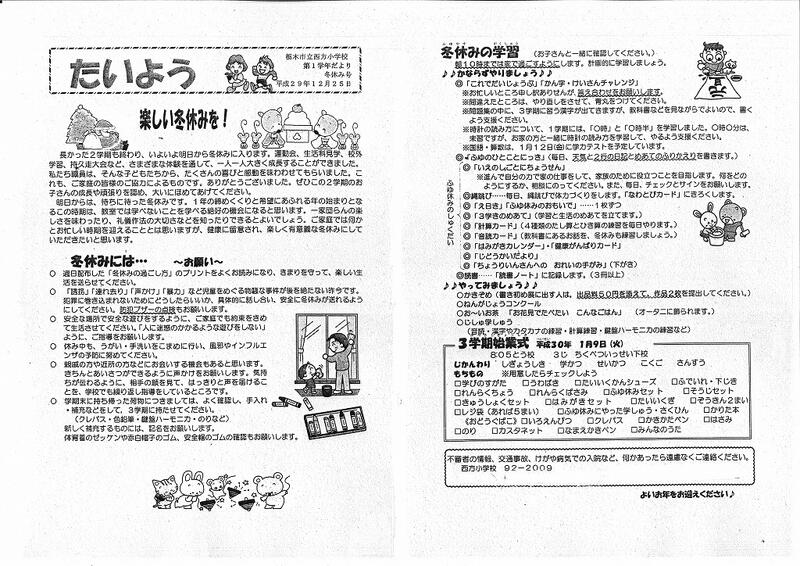 たいよう
栃木市立西方小学校
第1学年だより
冬休み号
平成29年12月25日
楽しい冬休みを！
長かった2学期も終わり、いよいよ明日から冬休みに入ります。運動会、生活科見学、校外
学習、持久走大会など、さまざまな体験を通して、一人一人大きく成長することができました。
私たち職員は、そんな子どもたちから、たくさんの喜びと感動を味わわせてもらいました。こ
れも、ご家庭の皆様のご協力によるものです。ありがとうございました。ぜひこの2学期のお
子さんの成長や頑張りを認め、大いにほめてあげてください。
明日からは、待ちに待った冬休みです。1年の締めくくりと希望にあふれる年の始まりとな
るこの時期は、教室では学べないことを学べる絶好の機会になると思います。一家団らんの楽
しさを味わったり、礼儀作法の大切さなどを知ったりできるとよいでしょう。ご家庭では何か
とお忙しい時期を迎えることとは思いますが、健康に留意され、楽しく有意義な冬休みにして
いただきたいと思います。
冬休みには… ～お願い～
○ 過日配布した「冬休みの過ごし方」のプリントをよくお読みになり、きまりを守って、楽しい生
活を送らせてください。
○ 「誘拐」「連れ去り」「声かけ」「暴力」など児童をめぐる物騒な事件が後を絶たない昨今です。
犯罪に巻き込まれないためにどうしたらいいか、具体的に話し合い、安全に冬休みが送れるよう
にしてください。防犯ブザーの点検もお願いします。
○ 安全な場所で安全な遊びをするように、ご家庭でも約束をきめ
て生活させてください。「人に迷惑のかかるような遊びをしない」
ように、ご指導をお願いします。
○ 休み中も、うがい・手洗いをこまめに行い、風邪やインフルエ
ンザの予防に努めてください。
○ 親戚の方や近所の方などにお会いする機会もあると思います。
きちんとあいさつができるように声かけをお願いします。気持
ちが伝わるように、相手の顔を見て、はっきりと声を届けるこ
とを、学校でも繰り返し指導をしているところです。
○ 学期末に持ち帰った荷物につきましては、よく確認し、手入れ
・補充などをして、3学期に持たせてください。
（クレパス・色鉛筆・鍵盤ハーモニカ・のりなど）
新しく補充するものには、記名をお願いします。
体育着のゼッケンや赤白帽子のゴム、安全帽のゴムの確認もお願いします。
冬休みの学習 （お子さんと一緒に確認してください。）
朝10時までは家で過ごすようにします。計画的に学習しましょう。
♪♪かならずやりましょう♪♪
◎「これでだいじょうぶ」「かん字・けいさんチャレンジ」
※お忙しいところ申し訳ありませんが、答え合わせをお願いします。
※間違えたところは、やり直しをさせて、青丸をつけてください。
※問題集の中に、3学期に習う漢字が出てきますが、教科書などを見ながらでよいので、書く
よう支援ください。
※時計の読み方について、1学期には、「○時」と「○時半」を学習しました。○時○分は、
未習ですが、お家の方と一緒に時計の読み方を学習して、やるよう支援ください。
※国語・算数は、1月12日(金)に学力テストを予定しています。
◎「ふゆのひとことにっき」（毎日、天気と2行の日記とめあてのふりかえりを書きます。）
ふゆ休みのしゅくだい
◎「いえのしごとにちょうせん」
※進んで自分の力で家の仕事をして、家族のために役立つことを目指します。何をどの
ようにするか、相談にのってください。また、毎日、チェックとサインをお願いします。
◎縄跳び……毎日、縄跳びで体力づくりをします。「なわとびカード」にきろします。
◎「え日き」「ふゆ休みのおもいで」……1枚ずつ
◎「3学きのめあて」（学習と生活のめあてを立てます。）
◎「計算カード」（4種類のたし算とひき算の練習を毎日やります。）
◎「音読カード」（教科書にあるお話を、冬休みも練習しましょう。）
◎「はみがきカレンダー」・「健康がんばりカード」
◎「じどうかいだより」
◎「ちょうりいんさんへの おれいの手がみ」（下がき）
◎読書……「読書ノート」に記録します。（3冊以上）
♪♪やってみましょう♪♪
○かきぞめ（書き初め展に出す人は、出品料50円を添えて、作品2枚を提出してください。）
○ねんがじょうコンクール
○お～いお茶 「お花見でたべたい こんなごはん」（オータニに飾られます。）
○じしゅ学しゅう
（音読・漢字やカタカナの練習・計算練習・鍵盤ハーモニカの練習など）
3学期始業式 平成30年 1月9日(火)
8:05とう校 3じ ちくべついっせい下校
じかんわり 「しぎょうしき 学かつ せいかつ こくご さんすう
もちもの ※用意したらチェックしよう
□学びのすがた □うわばき □たいいくかんシューズ □ふでいれ・下じき
□れんらくちょう □れんらくぶくろ □ふゆ休みセット □そうじセット
□きゅうしょくセット □はみがきセット □たいいくぎ □ぞうきん2まい
□レジ袋（あればうまい） □ふゆ休みにやった学しゅう・さくひん □かりた本
《おどうぐばこ》□いろえんぴつ □クレパス □かきかたペン □はさみ
□のり □カスタネット □なまえかきペン □みんなのうた
不審者の情報、交通事故、けがや病気での入院など、何かあったら遠慮なくご連絡ください。
西方小学校 92-2009
よいお年をお迎えください♪